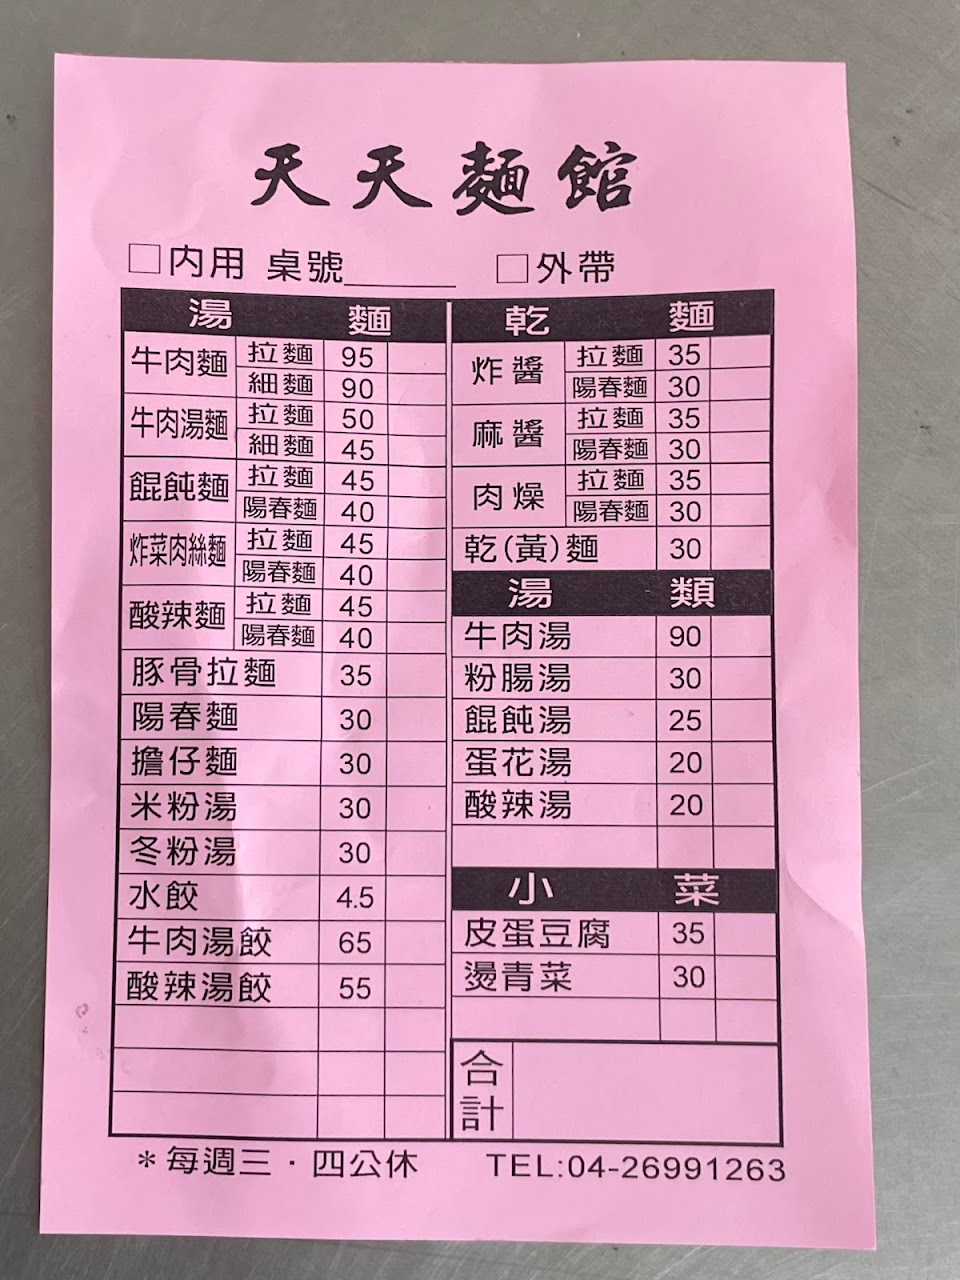 天天麵館
□內用 桌號______ □外帶
湯麵
牛肉麵 拉麵 95
細麵 90
牛肉湯麵 拉麵 50
細麵 45
餛飩麵 拉麵 45
陽春麵 40
炸菜肉絲麵 拉麵 45
陽春麵 40
酸辣麵 拉麵 45
陽春麵 40
豚骨拉麵 35
陽春麵 30
擔仔麵 30
米粉湯 30
冬粉湯 30
水餃 4.5
牛肉湯餃 65
酸辣湯餃 55
乾麵
炸醬 拉麵 35
陽春麵 30
麻醬 拉麵 35
陽春麵 30
肉燥 拉麵 35
陽春麵 30
乾(黃)麵 30
湯類
牛肉湯 90
粉腸湯 30
餛飩湯 25
蛋花湯 20
酸辣湯 20
小菜
皮蛋豆腐 35
燙青菜 30
合計
＊每週三．四公休 TEL:04-26991263